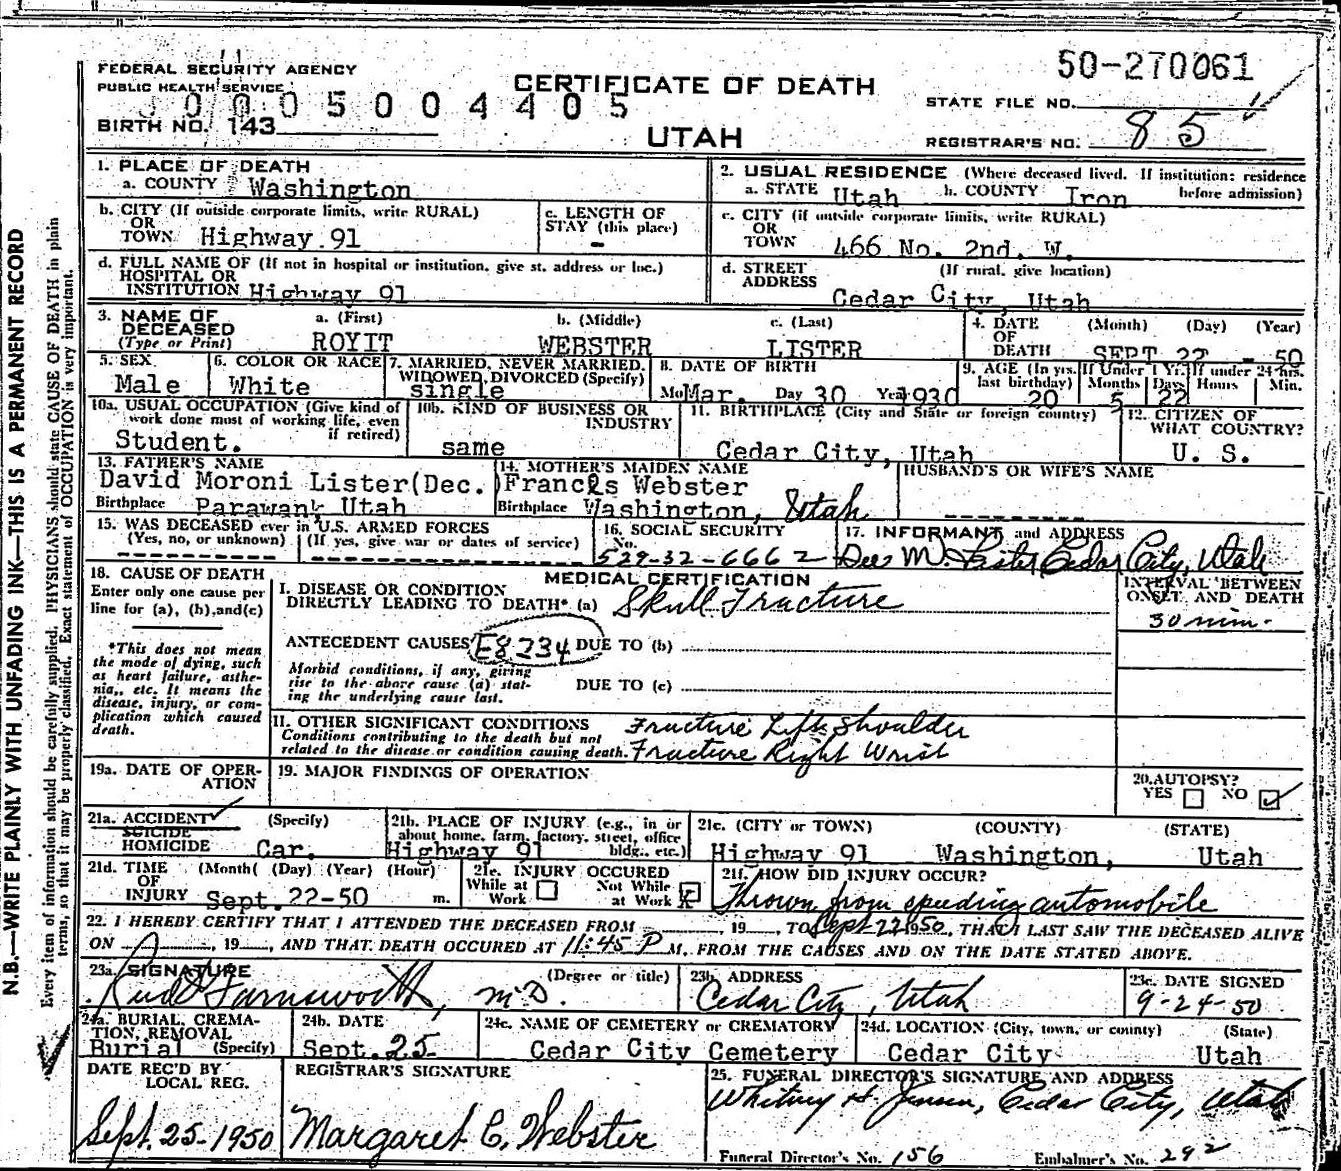 50-270061
FEDERAL SECURITY AGENCY
PUBLIC HEALTH SERVICE
CERTIFICATE OF DEATH
STATE FILE NO.
0005004405
BIRTH NO. 143
UTAH
REGISTRAR'S NO. 85
1. PLACE OF DEATH
a. COUNTY Washington
2. USUAL RESIDENCE (Where deceased lived. If institution: residence before admission)
a. STATE Utah b. COUNTY Iron
b. CITY (If outside corporate limits, write RURAL)
OR
TOWN Highway 91
c. LENGTH OF
STAY (this place)
-
c. CITY (if outside corporate limits, write RURAL)
OR
TOWN 466 No. 2nd. W.
d. FULL NAME OF (If not in hospital or institution, give st. address or loc.)
HOSPITAL OR
INSTITUTION Highway 91
d. STREET (If rural, give location)
ADDRESS Cedar City, Utah
3. NAME OF DECEASED (Type or Print)
a. (First) b. (Middle) c. (Last)
ROYIT WEBSTER LISTER
4. DATE OF DEATH (Month) (Day) (Year)
SEPT 22 - 50
5. SEX
Male
6. COLOR OR RACE
White
7. MARRIED, NEVER MARRIED,
WIDOWED, DIVORCED (Specify)
single
8. DATE OF BIRTH
Mo Mar. Day 30 Yea 1930
9. AGE (In yrs. last birthday) If Under 1 Yr. If under 24 hrs.
Months Days Hours Min.
20 5 22
10a. USUAL OCCUPATION (Give kind of
work done most of working life, even
if retired)
Student.
10b. KIND OF BUSINESS OR
INDUSTRY
same
11. BIRTHPLACE (City and State or foreign country)
Cedar City, Utah
12. CITIZEN OF
WHAT COUNTRY?
U. S.
13. FATHER'S NAME
David Moroni Lister(Dec.)
Birthplace Parawan, Utah
14. MOTHER'S MAIDEN NAME
Francis Webster
Birthplace Washington, Utah
HUSBAND'S OR WIFE'S NAME
15. WAS DECEASED ever in U.S. ARMED FORCES
(Yes, no, or unknown) (If yes, give war or dates of service)
16. SOCIAL SECURITY
No.
529-32-6662
17. INFORMANT and ADDRESS
M. Lister Cedar City, Utah
18. CAUSE OF DEATH
Enter only one cause per
line for (a), (b), and (c)
*This does not mean
the mode of dying, such
as heart failure, asthe-
nia, etc. It means the
disease, injury, or com-
plication which caused
death.
MEDICAL CERTIFICATION
I. DISEASE OR CONDITION
DIRECTLY LEADING TO DEATH* (a) Skull Fracture
INTERVAL BETWEEN
ONSET AND DEATH
30 min.
ANTECEDENT CAUSES E8234 DUE TO (b)
Morbid conditions, if any, giving
rise to the above cause (a) stat-
ing the underlying cause last.
DUE TO (c)
II. OTHER SIGNIFICANT CONDITIONS
Conditions contributing to the death but not
related to the disease or condition causing death.
Fracture Left Shoulder
Fracture Right Wrist
19a. DATE OF OPER-
ATION
19. MAJOR FINDINGS OF OPERATION
20. AUTOPSY?
YES NO
21a. ACCIDENT (Specify)
SUICIDE
HOMICIDE Car.
21b. PLACE OF INJURY (e.g., in or
about home, farm, factory, street, office
bldg., etc.)
Highway 91
21c. (CITY or TOWN) (COUNTY) (STATE)
Highway 91 Washington, Utah
21d. TIME (Month) (Day) (Year) (Hour)
OF
INJURY Sept. 22-50 m.
21e. INJURY OCCURED
While at Work
Not While at Work
21f. HOW DID INJURY OCCUR?
Thrown from speeding automobile
22. I HEREBY CERTIFY THAT I ATTENDED THE DECEASED FROM , 19 , TO Sept 22 1950, THAT I LAST SAW THE DECEASED ALIVE
ON , 19 , AND THAT DEATH OCCURED AT 11:45 P M, FROM THE CAUSES AND ON THE DATE STATED ABOVE.
23a. SIGNATURE (Degree or title)
Farnsworth, M.D.
23b. ADDRESS
Cedar City, Utah
23c. DATE SIGNED
9-24-50
24a. BURIAL, CREMA-
TION, REMOVAL
Burial (Specify)
24b. DATE
Sept. 25
24c. NAME OF CEMETERY or CREMATORY
Cedar City Cemetery
24d. LOCATION (City, town, or county) (State)
Cedar City Utah
DATE REC'D BY
LOCAL REG.
Sept. 25-1950
REGISTRAR'S SIGNATURE
Margaret C. Webster
25. FUNERAL DIRECTOR'S SIGNATURE AND ADDRESS
Whitney H. Jensen, Cedar City, Utah
Funeral Director's No. 156 Embalmer's No. 292
N.B.—WRITE PLAINLY WITH UNFADING INK—THIS IS A PERMANENT RECORD
Every item of information should be carefully supplied. PHYSICIANS should state CAUSE OF DEATH in plain
terms, so that it may be properly classified. Exact statement of OCCUPATION is very important.